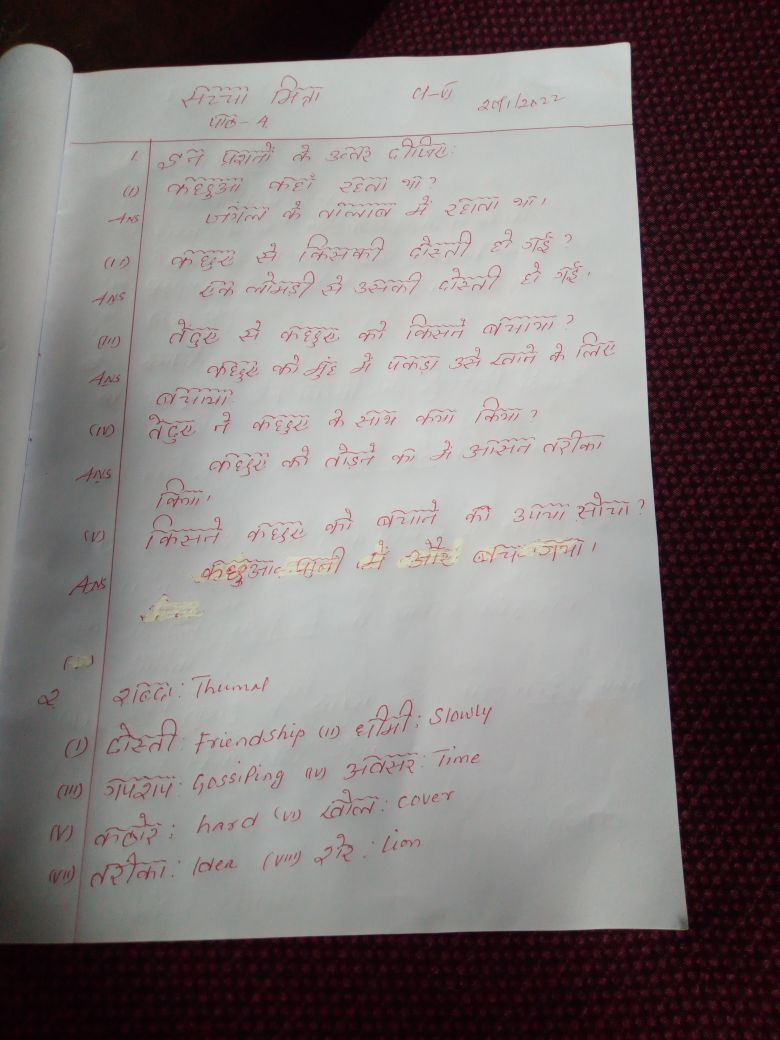 सच्चा मित्र Cl-VI
पाठ-4
1. इन प्रश्नों के उत्तर दीजिए:
(i) कछुआ कहाँ रहता था?
Ans जंगल के तालाब में रहाता था।
(ii) कछुए से किसकी दोस्ती हो गई?
Ans एक लोमड़ी से उसकी दोस्ती हो गई।
(iii) तेंदुए से कछुए को किसने बचाया?
Ans कछुए को मुंह मे पकड़ा उसे खाने के लिए
बचाया
(iv) तेंदुए ने कछुए के साथ क्या किया?
Ans कछुए को तोडने का मे आसन तरीका
किया।
(v) किसने कछुए को बचाने की उपया सोचा?
Ans कछुआ पानी में और बच गया।
2 शब्द: Thumal
(i) दोस्ती: Friendship (ii) धीमी: Slowly
(iii) गपशप: Gossiping (iv) अवसर: Time
(v) कठोर: hard (vi) खोल: cover
(vii) तरीका: Idea (viii) शेर: Lion